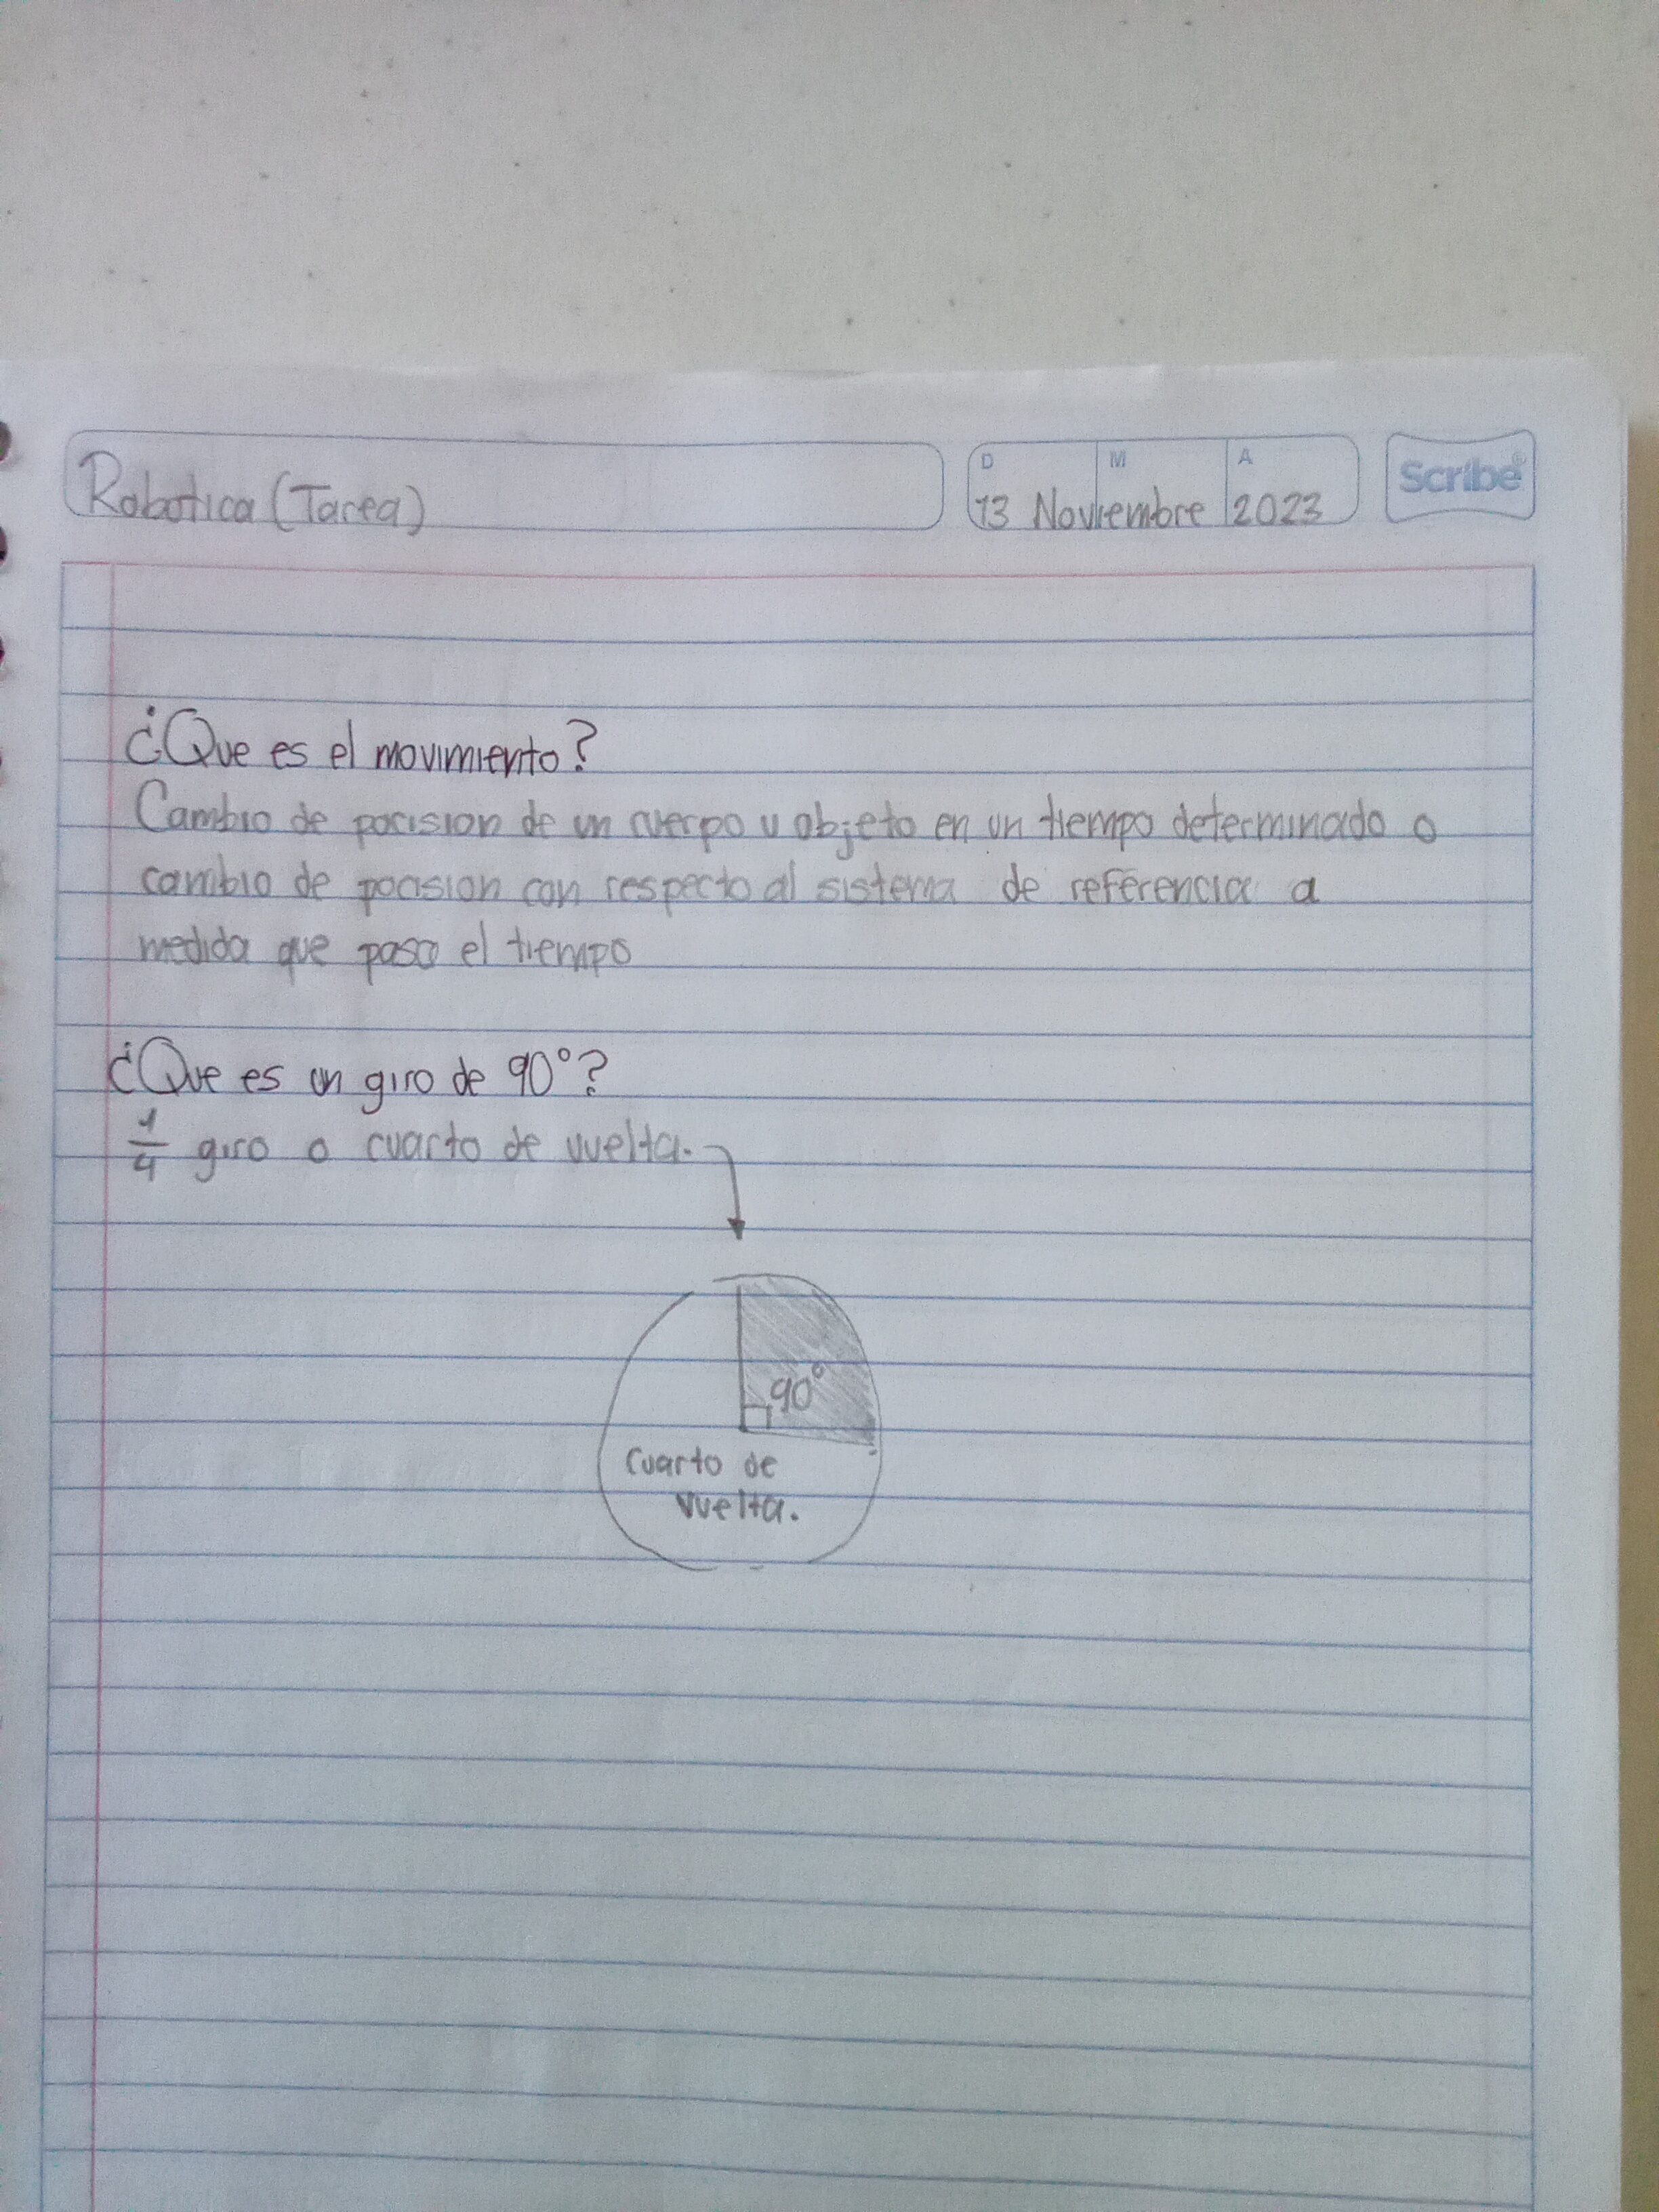 Robotica (Tarea)
D M A
13 Noviembre 2023
Scribe®
¿Que es el movimiento?
Cambio de pocision de un cuerpo u objeto en un tiempo determinado o
cambio de pocision con respecto al sistema de referencia a
medida que pasa el tiempo
¿Que es un giro de 90°?
1/4 giro o cuarto de vuelta.
90°
Cuarto de
vuelta.